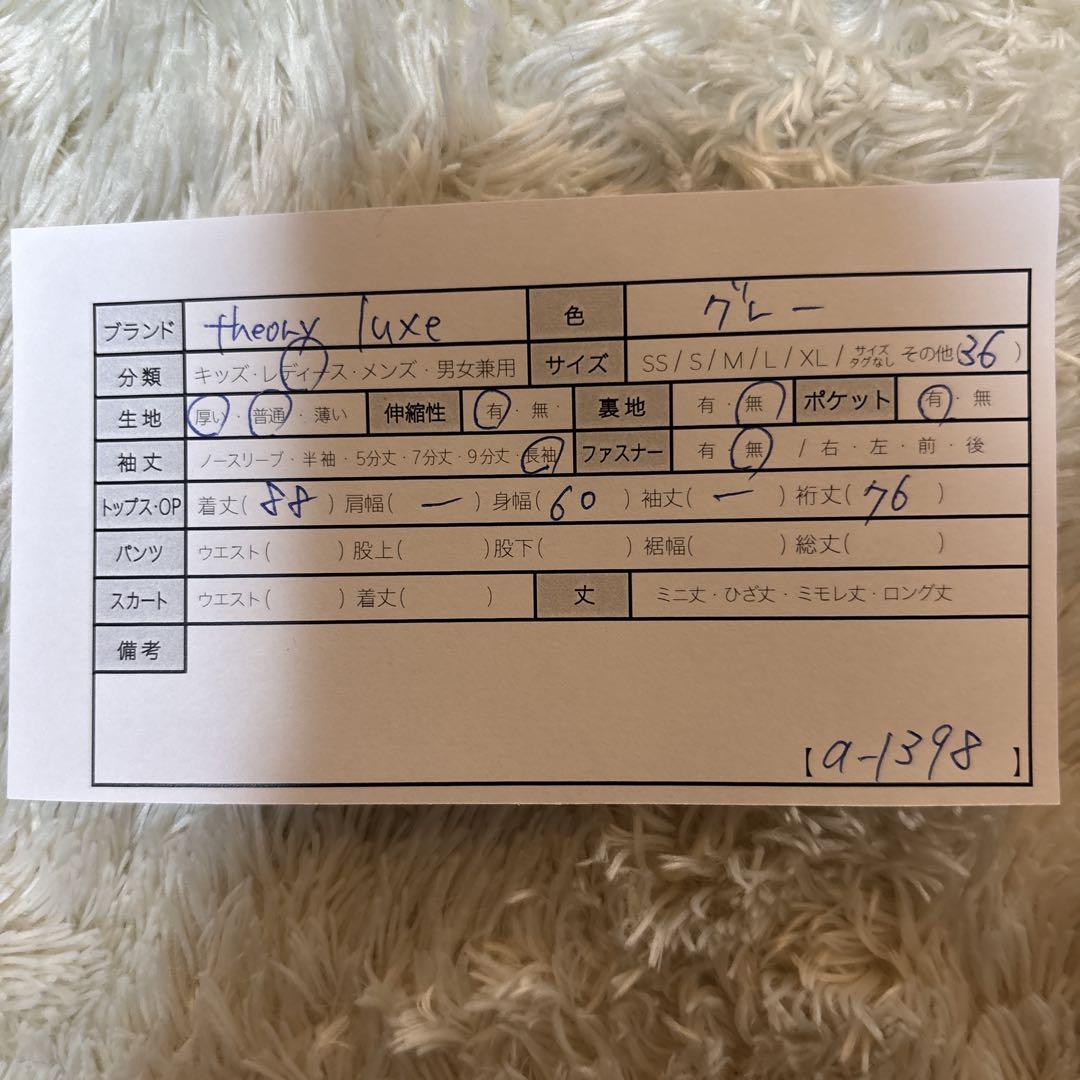 ブランド theory luxe 色 グレー
分類 キッズ・レディース・メンズ・男女兼用 サイズ SS / S / M / L / XL / サイズタグなし その他(36)
生地 厚い・普通・薄い 伸縮性 有・無 裏地 有・無 ポケット 有・無
袖丈 ノースリーブ・半袖・5分丈・7分丈・9分丈・長袖 ファスナー 有・無 / 右・左・前・後
トップス・OP 着丈(88) 肩幅(ー) 身幅(60) 袖丈(ー) 裄丈(76)
パンツ ウエスト( ) 股上( ) 股下( ) 裾幅( ) 総丈( )
スカート ウエスト( ) 着丈( ) 丈 ミニ丈・ひざ丈・ミモレ丈・ロング丈
備考
【a-1398】